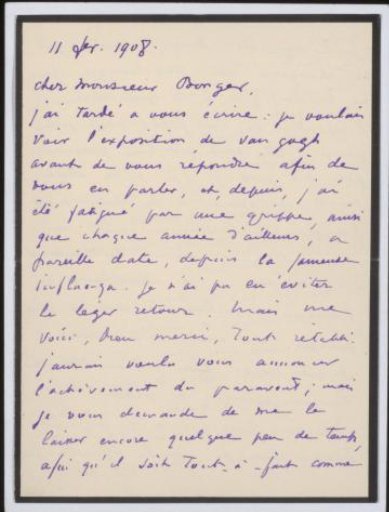 11 fev. 1908.
cher Monsieur Bonger,
j'ai tardé a vous écrire : je voulais
voir l'exposition de van gogh
avant de vous répondre afin de
vous en parler, et, depuis, j'ai
été fatigué par une grippe, ainsi
que chaque année d'ailleurs, a
pareille date, depuis la fameuse
influenza. je n'ai pu en éviter
le leger retour. Mais me
voici, Dieu merci, tout rétabli.
j'aurais voulu vous annoncer
l'achèvement du paravent ; mais
je vous demande de me le
laisser encore quelque peu de temps,
afin qu'il soit tout-à-fait comme